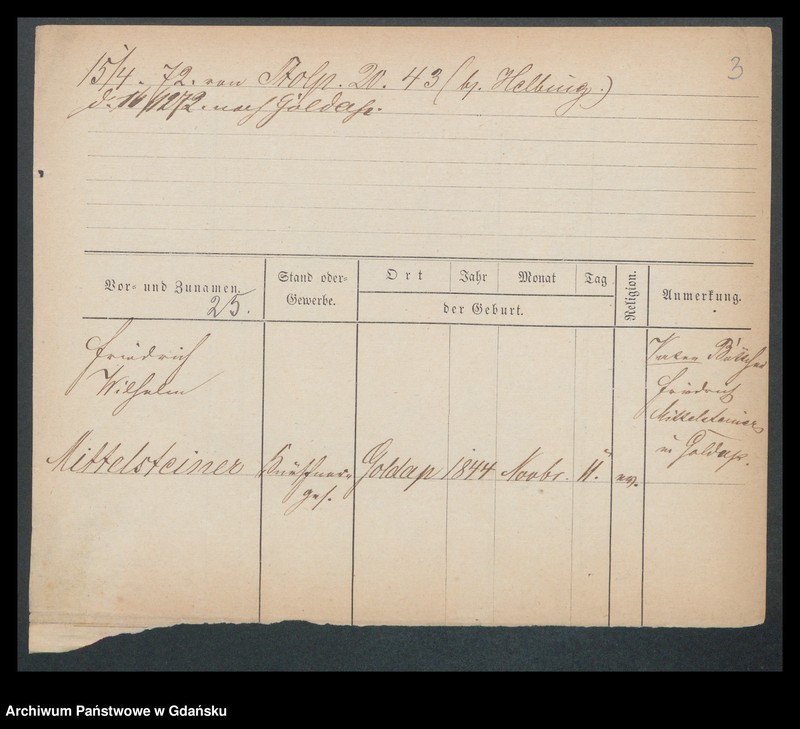 15/4. 72. von Stolp. W. 43 (bj. Helbing.)
d. 16/12 72. nach Goldap.
3
Vor- und Zunamen.
25.
Stand oder
Gewerbe.
Ort
Jahr
Monat
Tag
der Geburt.
Religion.
Anmerkung.
Friedrich
Wilhelm
Mittelsteiner
Kürschner-
ges.
Goldap
1844
Novbr.
11.
ev.
Vater Böttcher
Friedrich
Mittelsteiner
in Goldap.
Archiwum Państwowe w Gdańsku